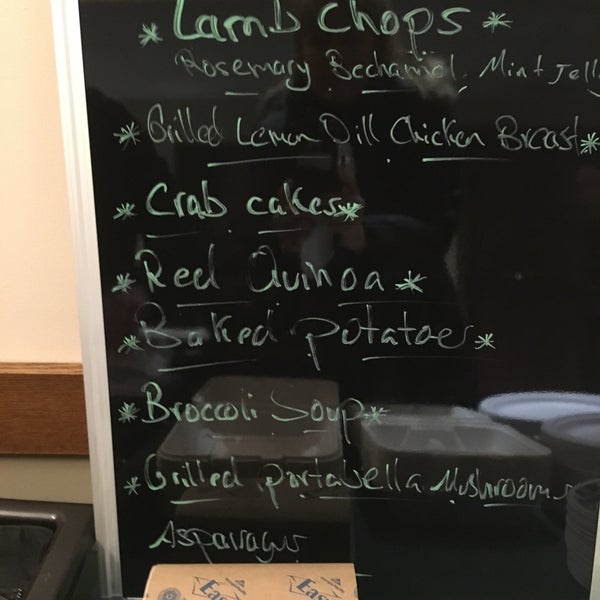 * Lamb Chops *
Rosemary Bechamel, Mint Jelly
* Grilled Lemon Dill Chicken Breast *
* Crab cakes *
* Red Quinoa *
* Baked potatoes *
* Broccoli Soup *
* Grilled portabella Mushrooms
Asparagus
Eas Eas